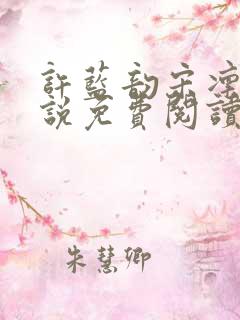 許藍韵宋凜
説免費閱讀
朱慧卿